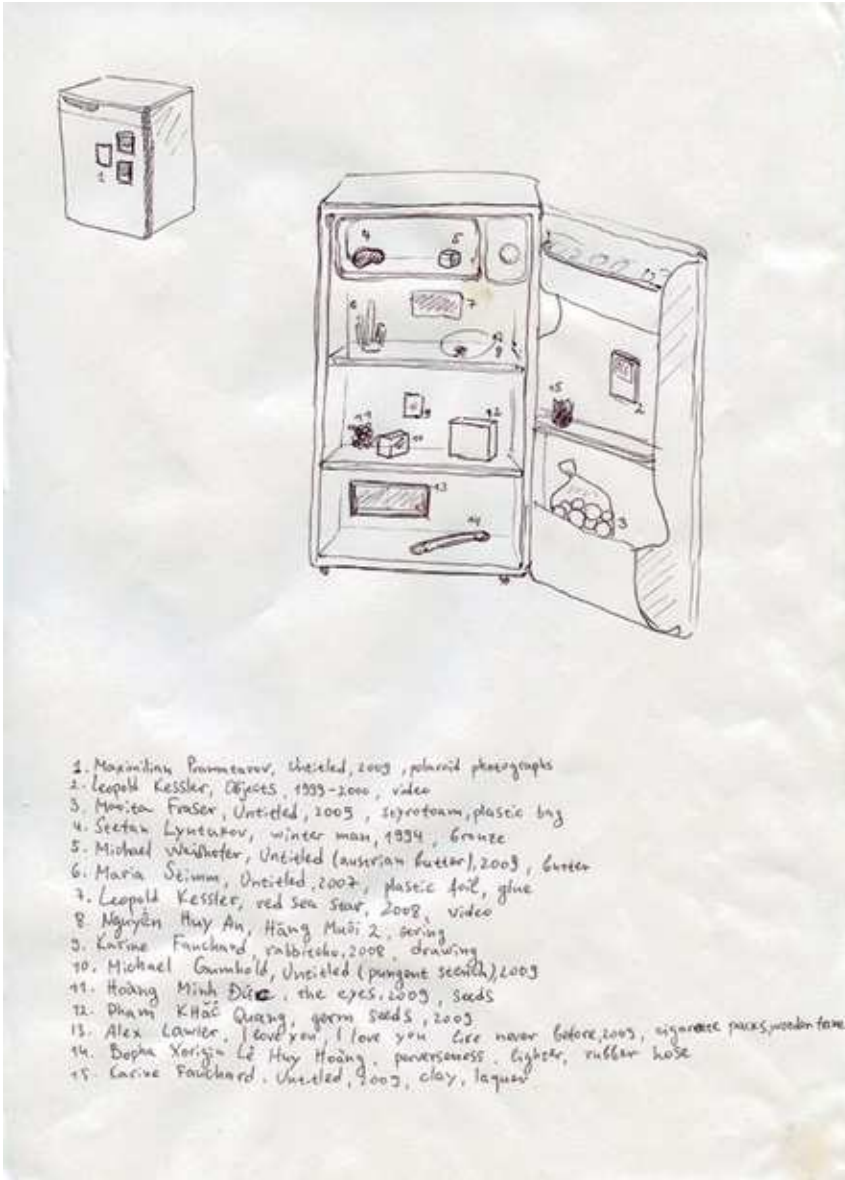 1
4 5
6 7
8
2
15
9
11 10 12
3
13
14
1. Maximilian Pramatarov, Untitled, 2009, polaroid photographs
2. Leopold Kessler, Objects, 1999-2000, video
3. Marita Fraser, Untitled, 2009, styrofoam, plastic bag
4. Stefan Lyutakov, winter man, 1994, bronze
5. Michael Weißhofer, Untitled (austrian butter), 2009, butter
6. Maria Stimm, Untitled, 2007, plastic foil, glue
7. Leopold Kessler, red sea star, 2008, video
8 Nguyễn Huy An, Hàng Muối 2, string
9. Karine Fauchard, rabbitoho, 2008, drawing
10. Michael Gumhold, Untitled (pungent stench), 2009
11. Hoàng Minh Đức, the eyes, 2009, seeds
12. Pham KHắc Quang, germ seeds, 2009
13. Alex Lawler, I love you, I love you like never before, 2009, cigarette packs, wooden frame
14. Bopha Xorigia Lê Huy Hoàng, perverseness, lighter, rubber hose
15 Karine Fauchard, Untitled, 2009, clay, laquer